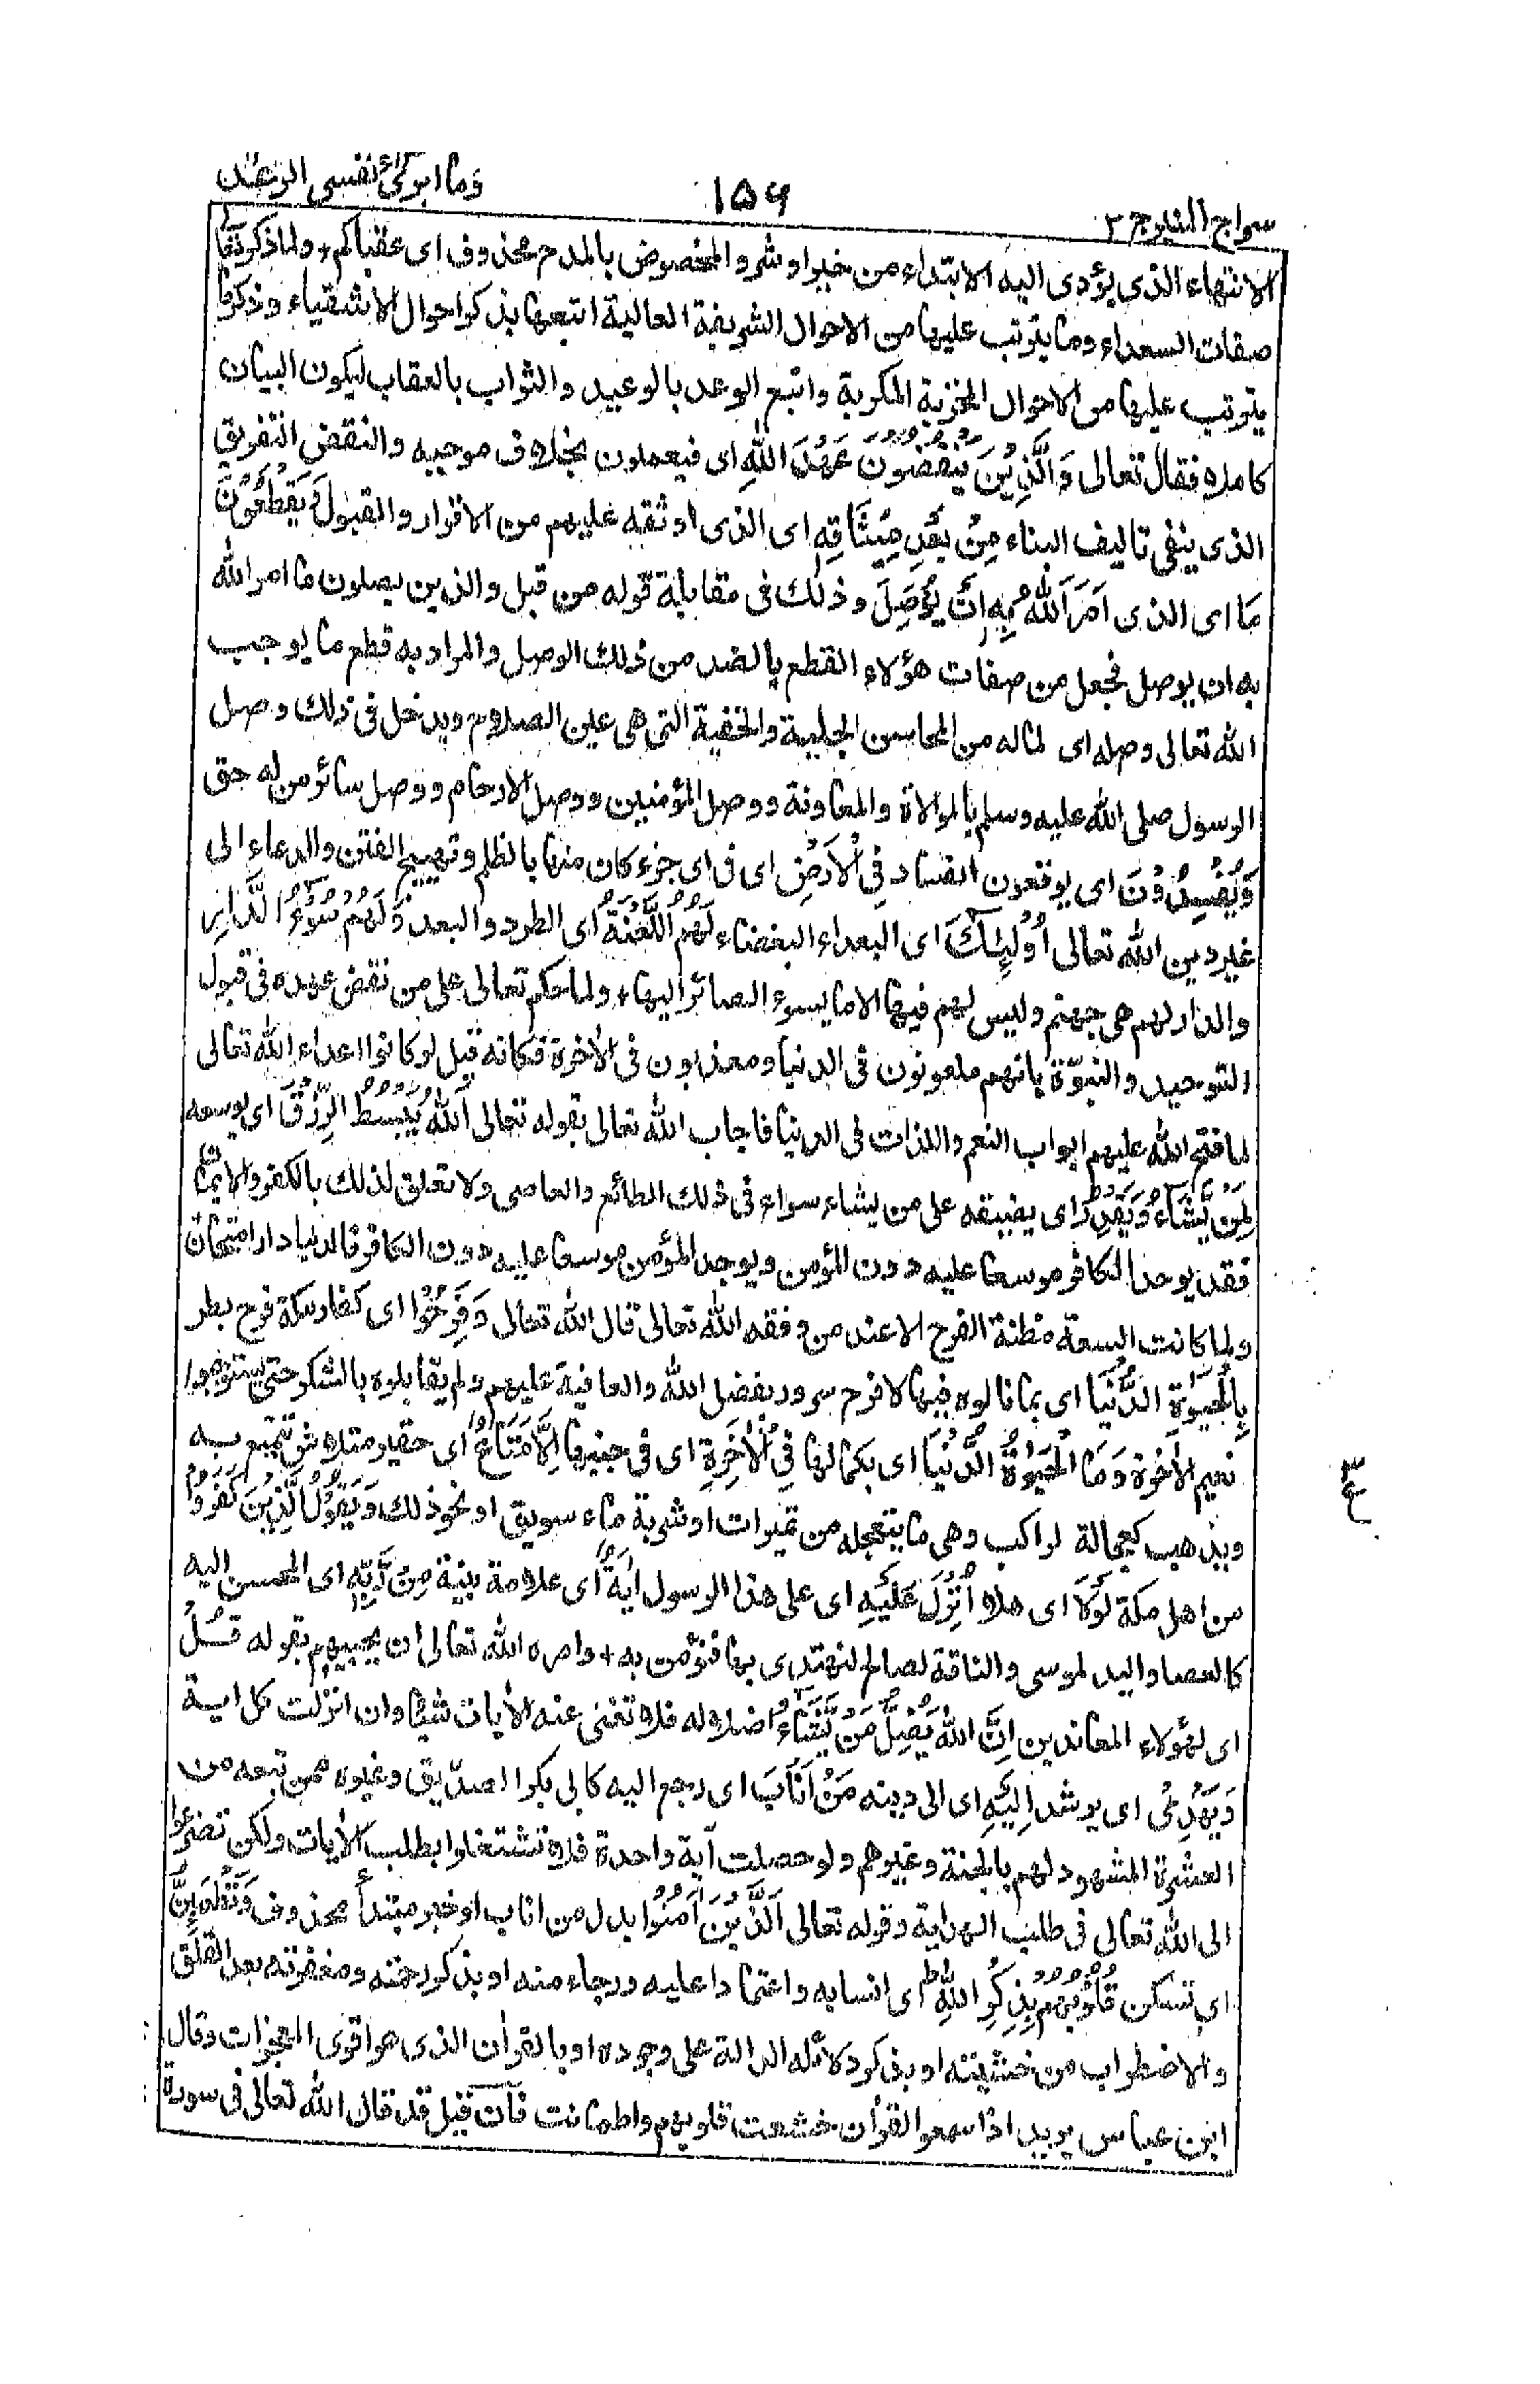 وما ابرئ نفسی الرعد
۱۵۶
سراج المنیر ج ۲
الانتهاء الذی یؤدی الیه الابتداء من خیر او شر و المخصوص بالمدح محذوف ای عقباکم + ولما ذکر تعالی
صفات السعداء وما یترتب علیها من الاحوال الشریفة العالیة اتبعها بذکر احوال الاشقیاء وذکر ما
یترتب علیها من الاحوال المخزیة المکربة واتبع الوعد بالوعید والثواب بالعقاب لیکون البیان
کاملا فقال تعالی وَالَّذِیْنَ یَنْقُضُوْنَ عَهْدَ اللهِ ای فیعملون بخلاف موجبه والنقض التفریق
الذی ینفی تالیف البناء مِنْ بَعْدِ مِیْثَاقِهٖ ای الذی اوثقه علیهم من الاقرار والقبول وَیَقْطَعُوْنَ
مَا ای الذی اَمَرَ اللهُ بِهٖ اَنْ یُّوْصَلَ وذلک فی مقابلة قوله من قبل والذین یصلون ما امر الله
به ان یوصل فجعل من صفات هؤلاء القطع بالضد من ذلک الوصل والمراد به قطع ما یوجب
الله تعالی وصله ای لماله من المحاسن الجلیة والخفیة التی هی عین الصلاح ویدخل فی ذلک وصل
الرسول صلی الله علیه وسلم بالموالاة والمعاونة ووصل المؤمنین ووصل الارحام ووصل سائر من له حق
وَیُفْسِدُوْنَ ای یوقعون الفساد فِی الْاَرْضِ ای فی ای جزء کان منها بالظلم وتهییج الفتن والدعاء الی
غیر دین الله تعالی اُولٰٓئِکَ ای البعداء البغضاء لَهُمُ اللَّعْنَةُ ای الطرد والبعد وَلَهُمْ سُوْٓءُ الدَّارِ
والدار لهم هی جهنم ولیس لهم فیها الا ما یسوء الصائر الیها + ولما حکم تعالی علی من نقض عهده فی قبول
التوحید والنبوّة بانهم ملعونون فی الدنیا ومعذبون فی الاٰخرة فکانه قیل لو کانوا اعداء الله تعالی
لما فتح الله علیهم ابواب النعم واللذات فی الدنیا فاجاب الله تعالی بقوله تعالی اَللهُ یَبْسُطُ الرِّزْقَ ای یوسعه
لِمَنْ یَّشَآءُ وَیَقْدِرُ ای یضیقه علی من یشاء سواء فی ذلک الطائع والعاصی ولا تعلق لذلک بالکفر والایمان
فقد یوجد الکافر موسعا علیه دون المؤمن ویوجد المؤمن موسعا علیه دون الکافر فالدنیا دار امتحان
ولما کانت السعة مظنة الفرح الا عند من وفقه الله تعالی قال الله تعالی وَفَرِحُوْا ای کفار مکة فرح بطر
بِالْحَیٰوةِ الدُّنْیَا ای بما نالوه فیها لا فرح سرور بفضل الله والعافیة علیهم ولم یقابلوه بالشکر حتی یستوجبوا
نعیم الاٰخرة وَمَا الْحَیٰوةُ الدُّنْیَا ای بکمالها فِی الْاٰخِرَةِ ای فی جنبها اِلَّا مَتَاعٌ ای حقیر متلاش یتمتع به
ویذهب کعجالة الراکب وهی ما یتعجله من تمیرات او شربة ماء سویق او نحو ذلک وَیَقُوْلُ الَّذِیْنَ کَفَرُوْا
من اهل مکة لَوْلَا ای هلا اُنْزِلَ عَلَیْهِ ای علی هذا الرسول اٰیَةٌ ای علامة بینة مِّنْ رَّبِّهٖ ای المحسن الیه
کالعصا والید لموسی والناقة لصالح لنهتدی بها فنؤمن به + وامره الله تعالی ان یجیبهم بقوله قُلْ
ای لهؤلاء المعاندین اِنَّ اللهَ یُضِلُّ مَنْ یَّشَآءُ اضلاله فلا تغنی عنه الاٰیات شیئا وان انزلت کل ایة
وَیَهْدِیْ ای یرشد اِلَیْهِ ای الی دینه مَنْ اَنَابَ ای رجع الیه کابی بکر الصدّیق وغیره ممن تبعه من
العشرة المشهود لهم بالجنة وغیرهم ولو حصلت آیة واحدة فلا تشتغلوا بطلب الاٰیات ولکن تضرعوا
الی الله تعالی فی طلب الهدایة وقوله تعالی اَلَّذِیْنَ اٰمَنُوْا بدل من اناب او خبر مبتدأ محذوف وَتَطْمَئِنُّ
ای تسکن قُلُوْبُهُمْ بِذِکْرِ اللهِ ای انسا به واعتمادا علیه ورجاء منه او بذکر رحمته ومغفرته بعد القلق
والاضطراب من خشیته او بذکر دلائله الدالة علی وجوده او بالقراٰن الذی هو اقوی المعجزات وقال
ابن عباس یرید اذا سمعوا القراٰن خشعت قلوبهم واطمانت فان قیل قد قال الله تعالی فی سورة